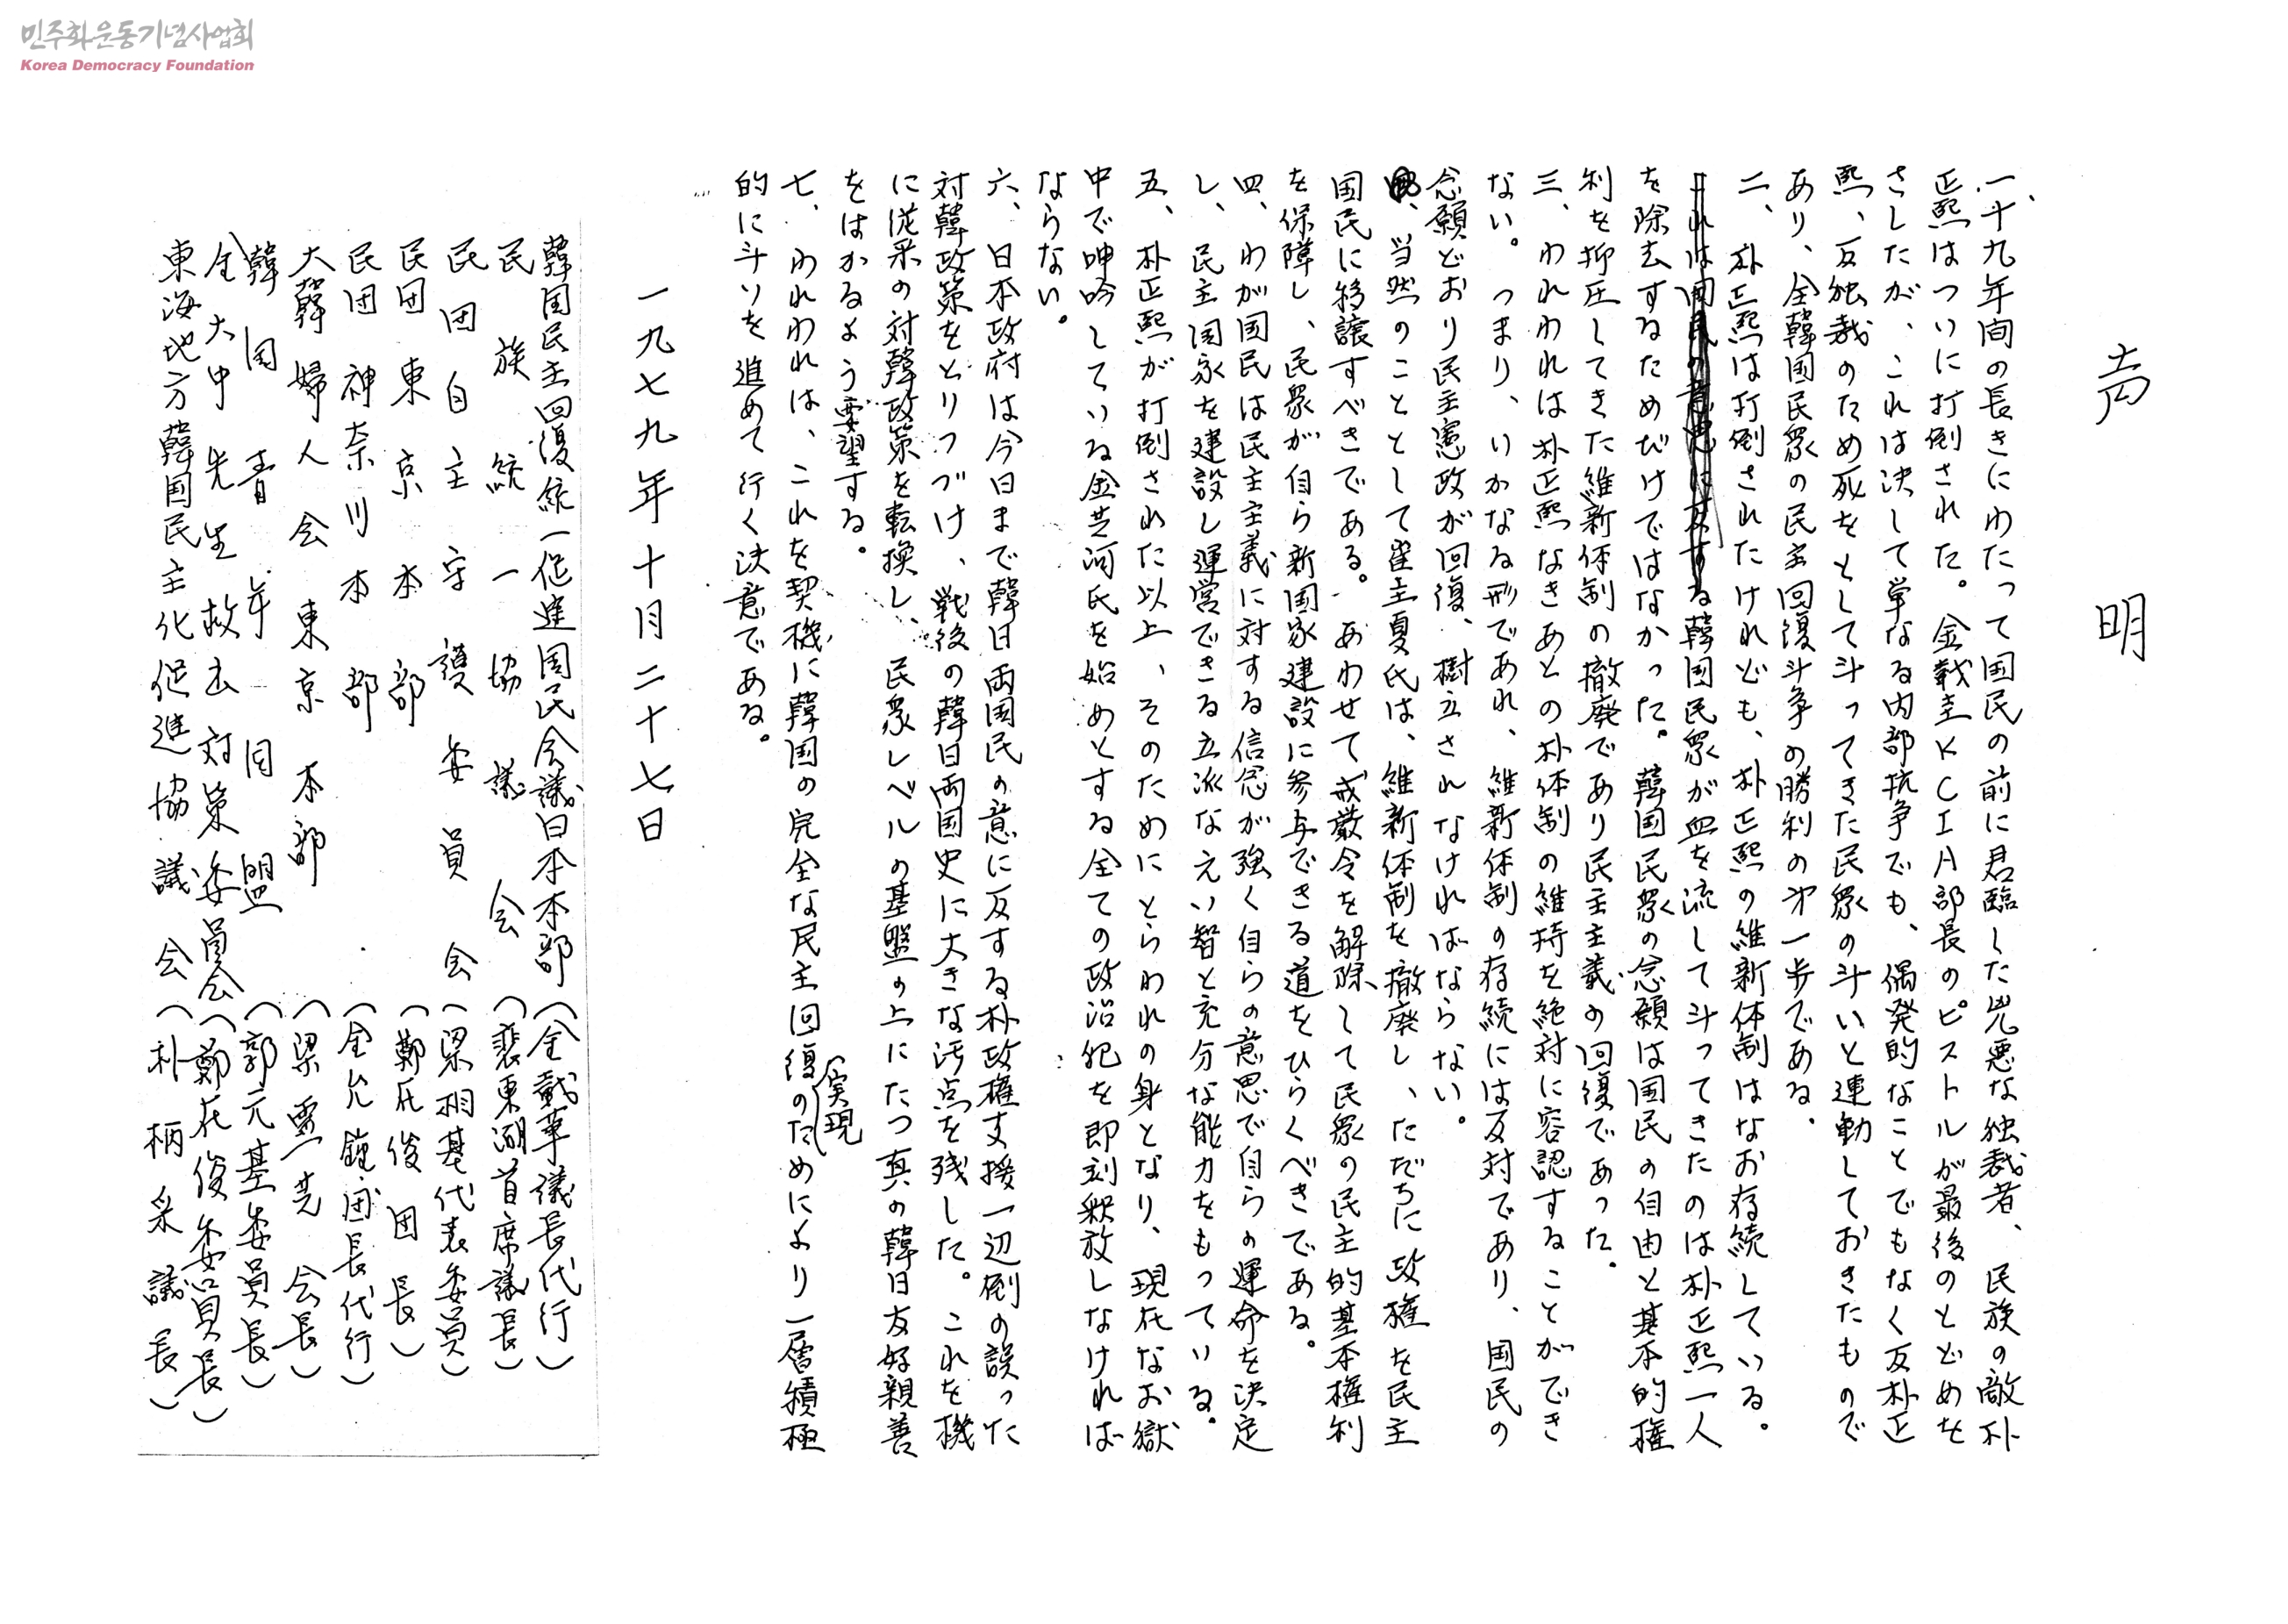 민주화운동기념사업회
Korea Democracy Foundation
声明
一、十九年間の長きにわたって国民の前に君臨した兇悪な独裁者、民族の敵朴
正熙はついに打倒された。金載圭KCIA部長のピストルが最後のとどめを
さしたが、これは決して単なる内部抗争でも、偶発的なことでもなく反朴正
熙、反独裁のため死をとして斗ってきた民衆の斗いと連動しておきたもので
あり、全韓国民衆の民主回復斗争の勝利の第一歩である。
二、朴正熙は打倒されたけれども、朴正熙の維新体制はなお存続している。
これは国民の意思に反する韓国民衆が血を流して斗ってきたのは朴正熙一人
を除去するためだけではなかった。韓国民衆の念願は国民の自由と基本的権
利を抑圧してきた維新体制の撤廃であり民主主義の回復であった。
三、われわれは朴正熙なきあとの朴体制の維持を絶対に容認することができ
ない。つまり、いかなる形であれ、維新体制の存続には反対であり、国民の
念願どおり民主憲政が回復、樹立されなければならない。
、当然のこととして崔圭夏氏は、維新体制を撤廃し、ただちに政権を民主
国民に移譲すべきである。あわせて戒厳令を解除して民衆の民主的基本権利
を保障し、民衆が自ら新国家建設に参与できる道をひらくべきである。
四、わが国民は民主主義に対する信念が強く自らの意思で自らの運命を決定
し、民主国家を建設し運営できる立派なえい智と充分な能力をもっている。
五、朴正熙が打倒された以上、そのためにとらわれの身となり、現在なお獄
中で呻吟している金芝河氏を始めとする全ての政治犯を即刻釈放しなければ
ならない。
六、日本政府は今日まで韓日両国民の意に反する朴政権支援一辺倒の誤った
対韓政策をとりつづけ、戦後の韓日両国史に大きな汚点を残した。これを機
に従来の対韓政策を転換し、民衆レベルの基盤の上にたつ真の韓日友好親善
をはかるよう要望する。
七、われわれは、これを契機に韓国の完全な民主回復の実現のためにより一層積極
的に斗いを進めて行く決意である。
一九七九年十月二十七日
韓国民主回復統一促進国民会議日本本部（金載華議長代行）
民族統一協議会（裴東湖首席議長）
民団自主守護委員会（梁相基代表委員）
民団東京本部（鄭在俊団長）
民団神奈川本部（金允鍾団長代行）
大韓婦人会東京本部（梁霊芝会長）
韓国青年同盟（郭元基委員長）
金大中先生救出対策委員会（鄭在俊委員長）
東海地方韓国民主化促進協議会（朴柄采議長）